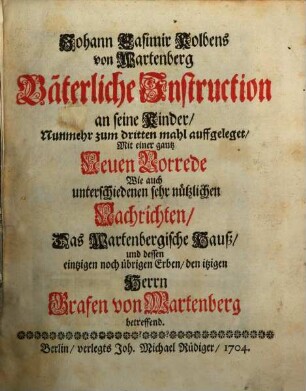 Johann Casimir Kolbens
von Wartenberg
Väterliche Instruction
an seine Kinder/
Nunmehr zum dritten mahl auffgeleget/
Mit einer gantz
Neuen Vorrede
Wie auch
unterschiedenen sehr nützlichen
Nachrichten/
Das Wartenbergische Hauß/
und dessen
eintzigen noch übrigen Erben/ den itzigen
Herrn
Grafen von Wartenberg
betreffend.
Berlin/ verlegts Joh. Michael Rüdiger/ 1704.